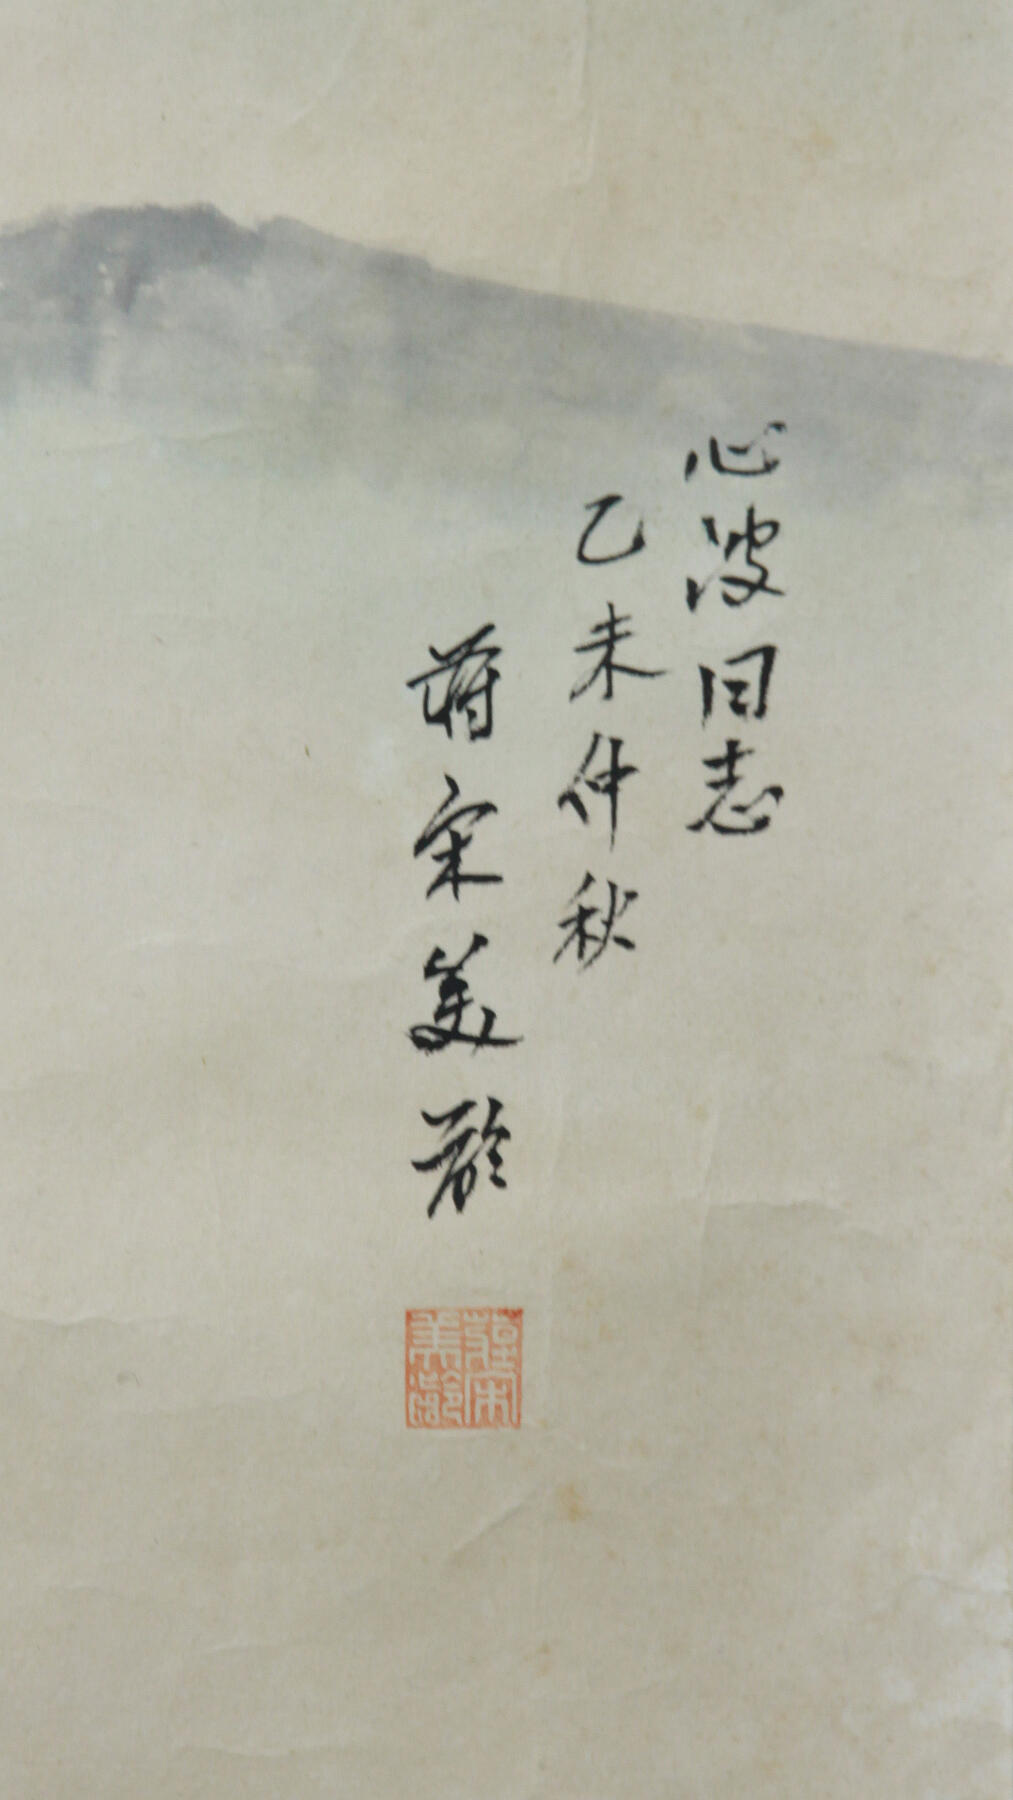 心波同志
乙未仲秋
蔣宋美齡
蔣宋
美齡